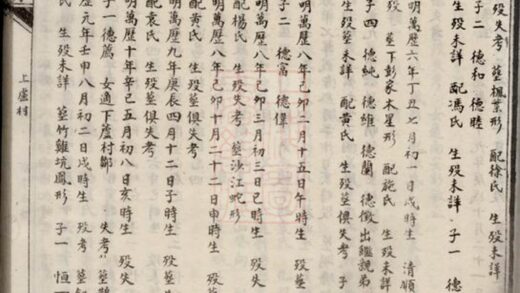 生殁失考 葬楓葉形 配徐氏 生殁未詳
子二 德和 德睦
生殁未詳 配馮氏 生殁未詳 子一 德
明萬歷六年丁丑七月初一日戌時生 清順
葬下彭家木星形 配施氏 生殁未詳
子四 德純 德維 德蘭 德傲出繼親弟
生殁未詳 配黃氏 生殁葬俱失考 子
明萬歷八年己卯二月十五日午時生 葬
子二 德富 德偉
明萬歷八年己卯三月初三日巳時生 殁失
配楊氏 生殁失考 葬沙江蛇形
明萬歷八年己卯十月二十二日申時生 殁
配黃氏 生殁葬俱失考
明萬歷九年庚辰四月十二日子時生 殁葬
配袁氏 生殁葬俱失考
明萬歷十年辛巳五月初八日亥時生 殁失
子一 德萬 女適下盧村鄒
歷元年壬申八月初二日戌時生 殁考
葬竹雞坑鳳形 子一 恒
上盧村